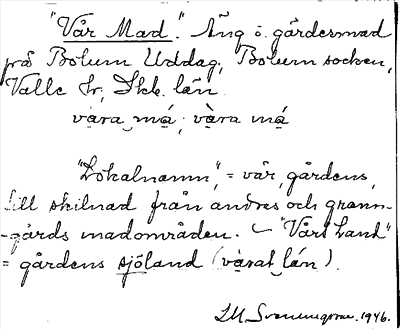 "Vår Mad". Äng i. gårdesmad
på Bolum Uddag, Bolum socken,
Valle hr, Skb. län.
vàra má; vàra má
"Lokalnamn", = vår, gårdens,
till skilnad från andres och grann-
-gårds madområden. "Vårt Land"
= gårdens sjöland (vàrat lán).
Svenungsson. 1946.